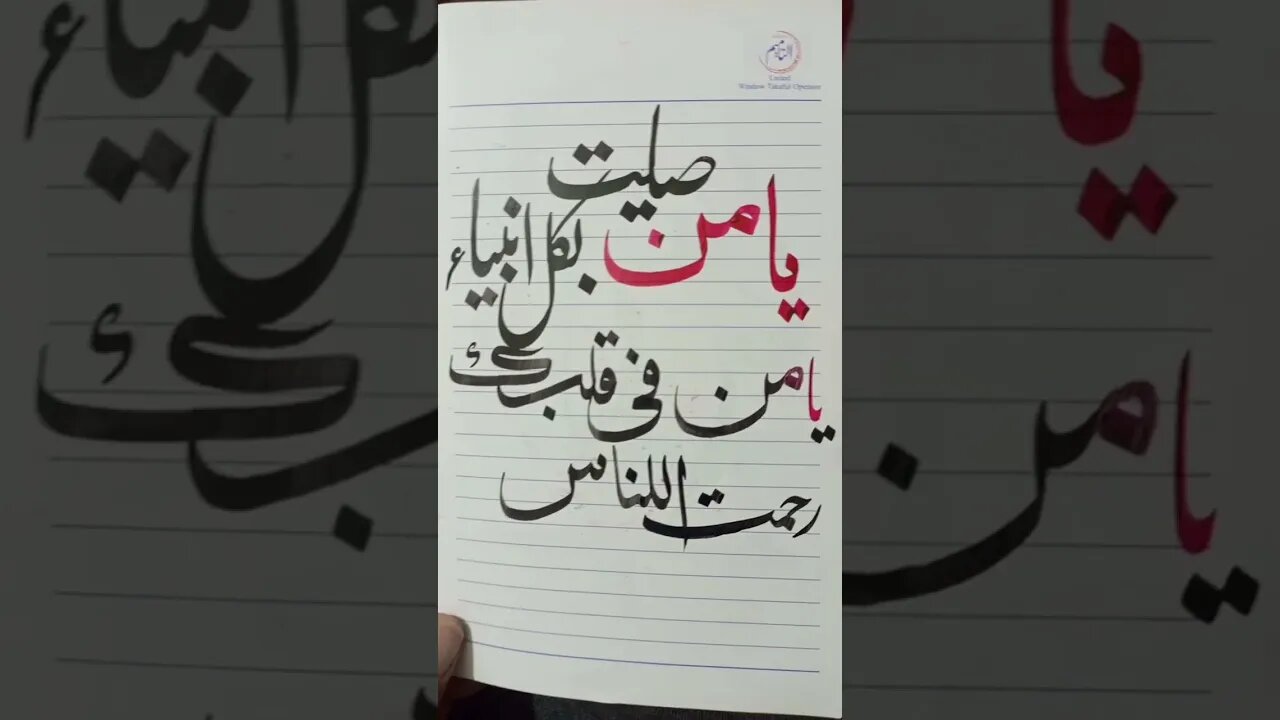 United
Window Takaful Operator
يا من صليت بكل انبياء
يا من فى قلبك
رحمت اللناس